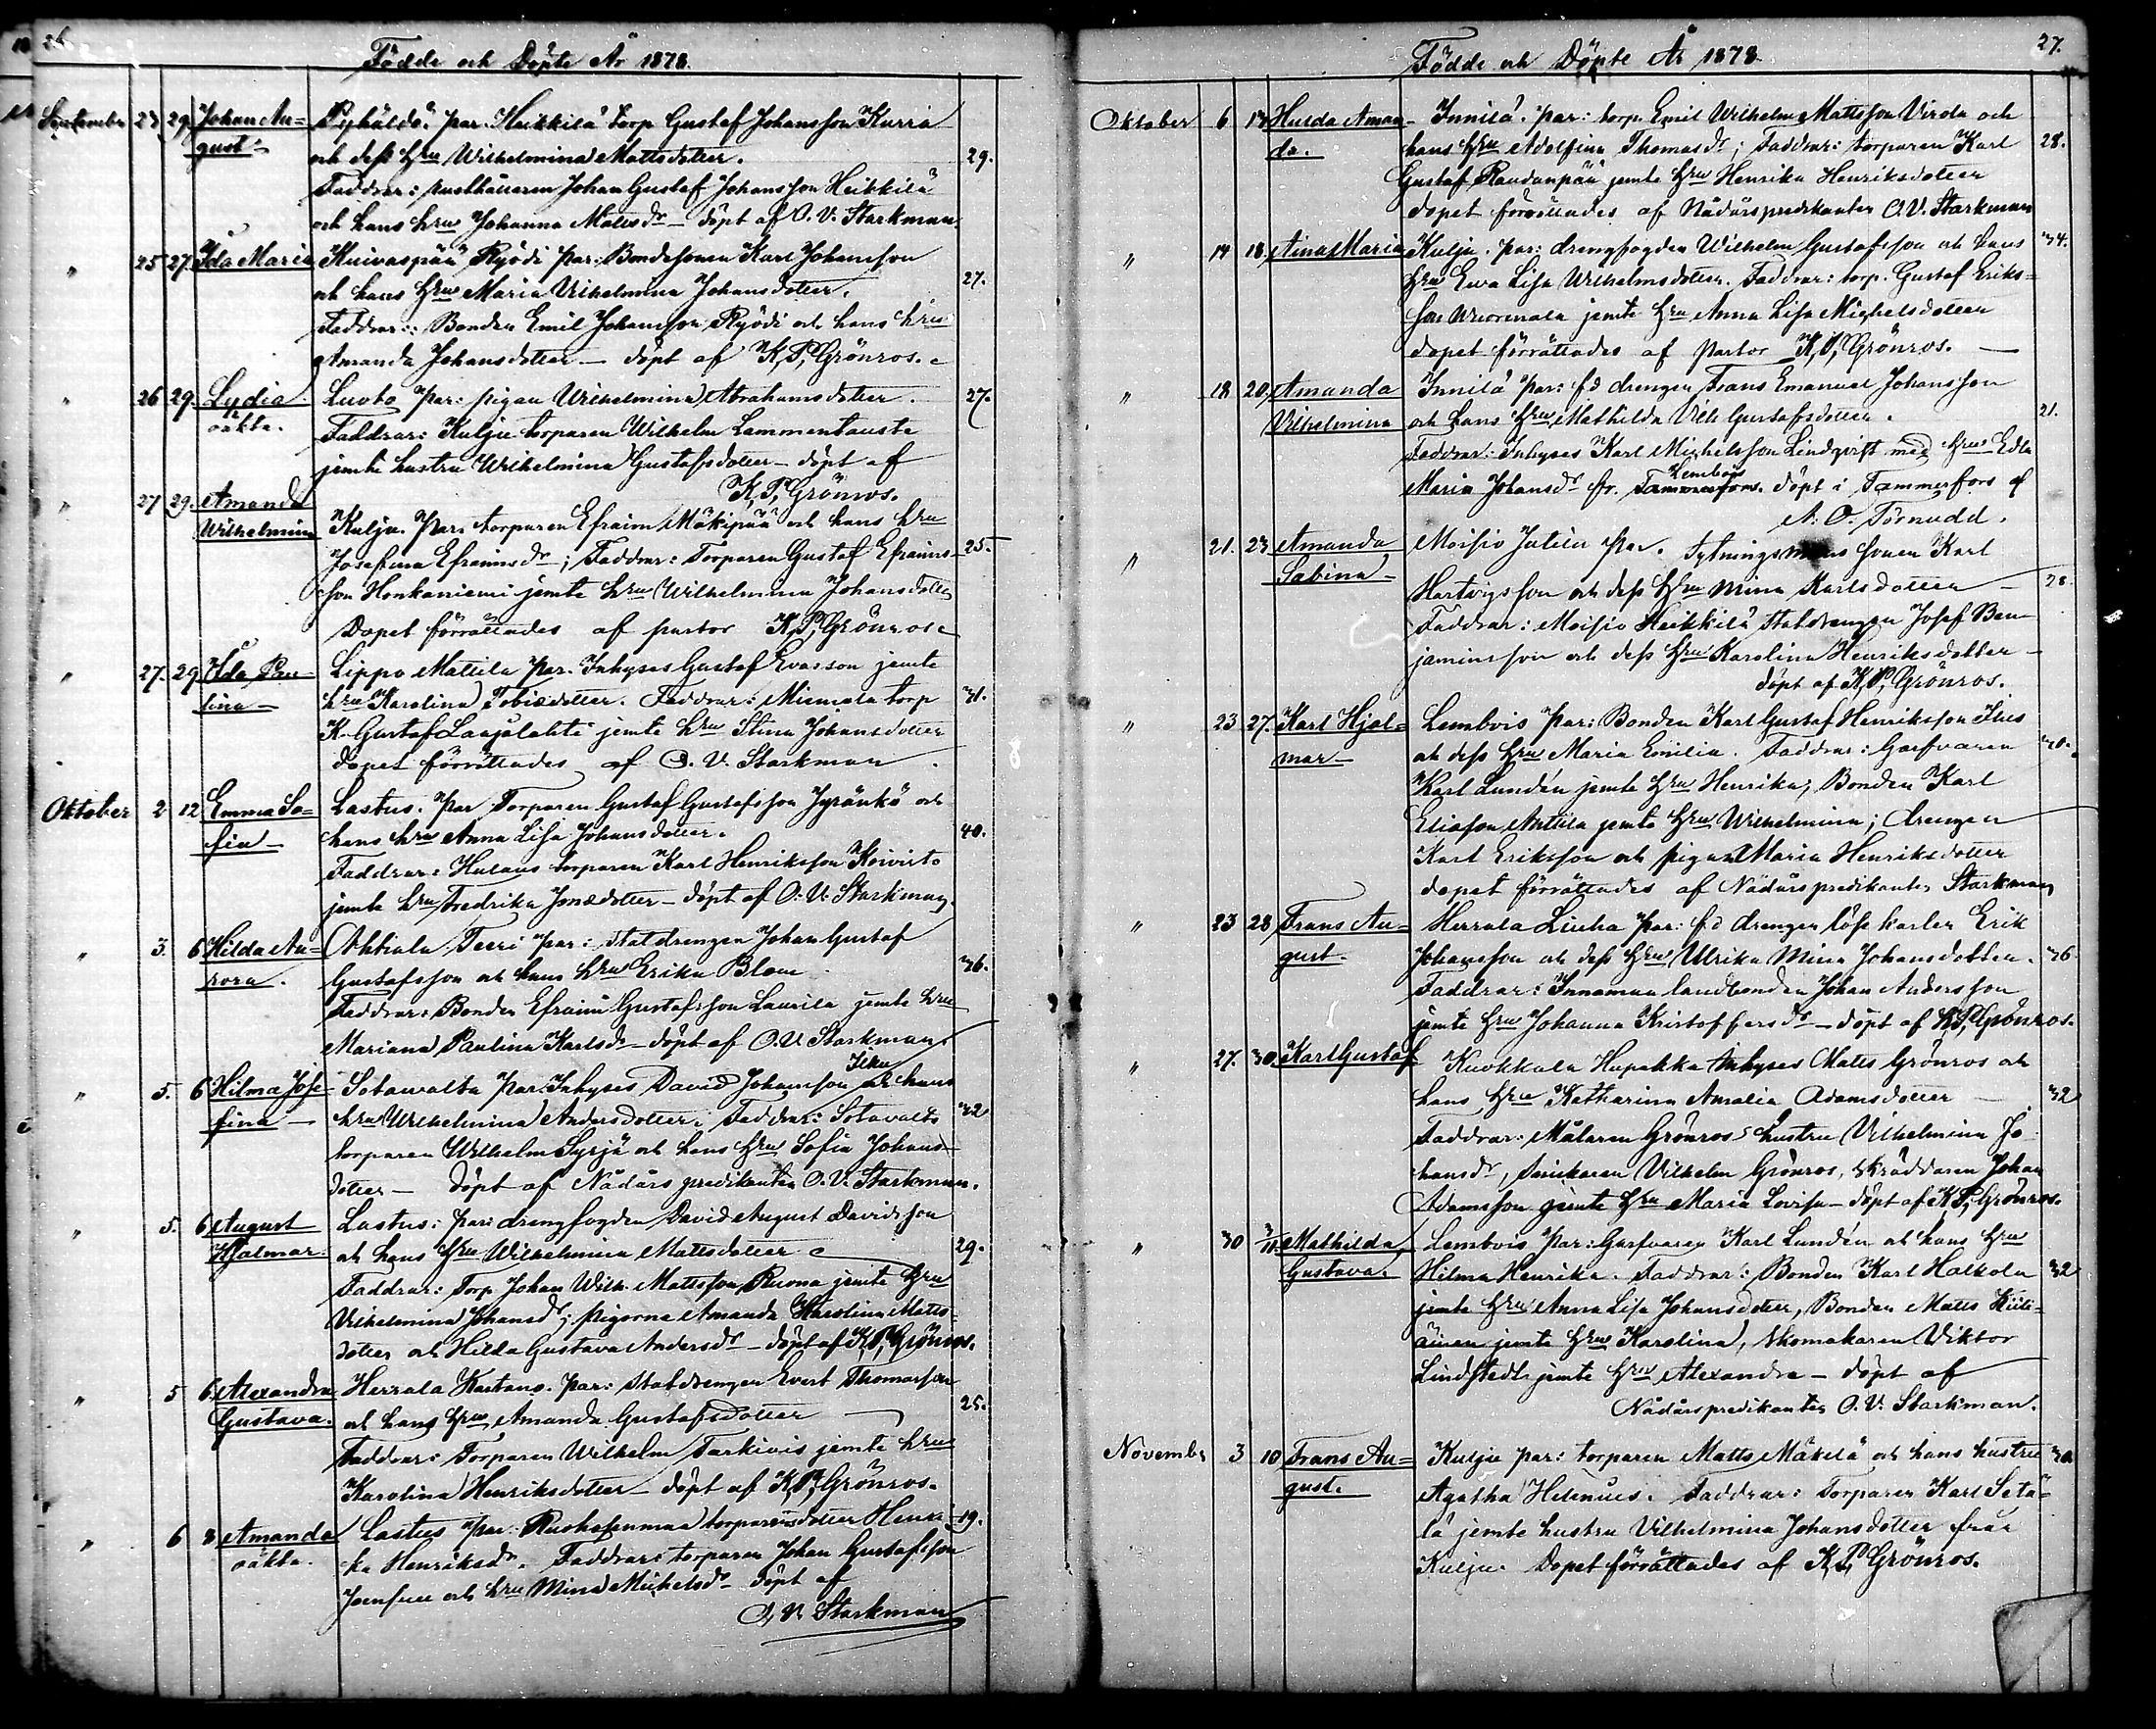 26
Födde och Döpte År 1878.
September 23 29 Johan Au= Pyhäldö. par. Heikkilä torp Gustaf Johansson Kurra
gust och dess Hru Wilhelmina Mattsdotter. 29.
Faddrar: rusthållaren Johan Gustaf Johansson Heikkilä
och hans hru Johanna Mattsdr - döpt af O. V. Starkman.
" 25 27. Ida Maria Kuivaspää Ryödi par: Bondesonen Karl Johansson
och hans Hru Maria Wilhelmina Johansdotter. 27.
Faddrar: Bonden Emil Johansson Ryödi och hans hru
Amanda Johansdotter - döpt af K. P. Grönros.
" 26 29. Lydia Luoto par: pigan Wilhelmina Abrahamsdotter. 27.
oäkta. Faddrar: Kulju torparen Wilhelm Lammentausta
jemte hustru Wilhelmina Gustafsdotter - döpt af
K. P. Grönros.
" 27 29. Amanda
Wilhelmina Kulju. Par: torparen Efraim Mäkipää och hans hru
Josefina Efraimsdr; Faddrar: Torparen Gustaf Efraims- 25.
son Honkaniemi jemte hru Wilhelmina Johansdotter
Dopet förrättades af pastor K. P. Grönros
" 27. 29. Ida Pau- Lippo Mattila par. Inhyses Gustaf Evasson jemte
lina - hru Karolina Tobiædotter. Faddrar: Miemola torp 31.
K. Gustaf Laajalahti jemte hru Stina Johansdotter
dopet förrättades af O. V. Starkman.
Oktober 2 12 Emma So= Lastus. Par Torparen Gustaf Gustafsson Jyränkö och
fia - hans hru Anna Lisa Johansdotter. 40.
Faddrar: Hulaus torparen Karl Henriksson Koivisto
jemte hru Fredrika Jonædotter - döpt af O. V. Starkman.
" 3. 6 Hilda Au= Ahtiala Teeri par: Statdrengen Johan Gustaf
rora. Gustafsson och hans hru Erika Blom 36.
Faddrar: Bonden Efraim Gustafsson Laurila jemte hru
Mariana Paulina Karlsdr - döpt af O. V. Starkman.
" 5. 6 Hilma Jose- Sotawalta par: Inhyses David Johansson Ilku och hans
fina - hru Wilhelmina Andersdotter; Faddrar: Sotavalta 32
torparen Wilhelm Syrjä och hans hru Sofia Johans-
dotter - döpt af Nådårs predikanten O. V. Starkman.
" 5. 6 August Lastus: par: drengfogden David August Davidsson
Hjalmar. och hans Hru Wilhelmina Mattsdotter 29.
Faddrar: Torp Johan Wilh. Mattsson Ruona jemte Hru
Vilhelmina Johansdr; pigorna Amanda Karolina Matts-
dotter och Hilda Gustava Andersdr - döpt af K. P. Grönros.
" 5 6 Alexandra Herrala Kartano. par: statdrengen Evert Thomasson
Gustava. och hans Hru Amanda Gustafsdotter 25.
Faddrar: Torparen Wilhelm Tarkivis jemte hru
Karolina Henriksdotter - döpt af K. P. Grönros.
" 6 8 Amanda Lastus par: Ruohosenmaa torparensdotter Henri- 19.
oäkta. ka Henriksdr. Faddrar: torparen Johan Gustafsson
Joensuu och hru Mina Michelsdr - döpt af
O. V. Starkman
27.
Födde och Döpte År 1878
Oktober 6 13 Hulda Aman- Innilä. par: torp. Emil Wilhelm Mattsson Virda och
da. hans Hru Adolfina Thomasdr; Faddrar: torparen Karl 28.
Gustaf Raudanpää jemte Hru Henrika Henriksdotter
dopet förrättades af Nådårspredikanten O. V. Starkman
" 14 18 Aina Maria Kulju. par: drengfogden Wilhelm Gustafsson och hans 34.
Hru Eva Lisa Wilhelmsdotter. Faddrar: torp. Gustaf Eriks=
son Wuorenala jemte Hru Anna Lisa Michelsdotter
dopet förrättades af Pastor K. P. Grönros. -
" 18 20, Amanda Innilä par: f.d drengen Frans Emanuel Johansson
Vilhelmina och hans Hru Mathilda Vilh Gustafsdotter. 21.
Faddrar: Inhyses Karl Michelsson Lindqvist med Hru Edla
Maria Johansdr fr. Lembois döpt i Tammerfors af
A. O. Törnudd.
" 21. 23 Amanda Moisio Jutila par. Sytningsmans sonen Karl
Sabina - Hartvigsson och dess Hru Mina Karlsdotter - 28.
Faddrar: Moisio Heikkilä Statdrengen Josef Ben-
jaminsson och dess Hru Karolina Henriksdotter -
döpt af K. P. Grönros.
" 23 27. Karl Hjal= Lembois par: Bonden Karl Gustaf Henriksson
mar - och dess Hru Maria Emilia. Faddrar: Garfvaren 30.
Karl Lundén jemte Hru Henrika; Bonden Karl
Eliasson Anttila jemte Hru Wilhelmina; drengen
Karl Eriksson och pigan Maria Henriksdotter
dopet förrättades af Nådårspredikanten Starkman
" 23 28 Frans Au= Herrala Liuha par: f.d drengen löse karlen Erik
gust. Johansson och dess Hru Ulrika Mina Johansdotter. 36
Faddrar: Innamaa landbonden Johan Andersson
jemte Hru Johanna Kristoffersdr - döpt af K. P. Grönros.
" 27. 30 Karl Gustaf Kuokkala Hupakka Inhyses Matts Grönros och
hans Hru Katharina Amalia Adamsdotter - 32
Faddrar: Målaren Grönros' hustru Vilhelmina Jo-
hansdr, snickaren Vilhelm Grönros, skräddaren Johan
Adamsson jemte Hru Maria Lovisa - döpt af K. P. Grönros.
" 30 3/11 Mathilda Lembois par: Garfvaren Karl Lundén och hans Hru
Gustava. Hilma Henrika. Faddrar: Bonden Karl Halkola 32
jemte Hru Anna Lisa Johansdotter, Bonden Matts Kiili-
äinen jemte Hru Karolina, skomakaren Viktor
Lindstedt jemte Hru Alexandra - döpt af
Nådårspredikanten O. V. Starkman.
November 3 10 Frans Au= Kulju par: torparen Matts Mäkelä och hans hustru 30
gust. Agatha Helenius. Faddrar: Torparen Karl Setä-
lä jemte hustru Vilhelmina Johansdotter från
Kulju. Dopet förrättades af K. P. Grönros.